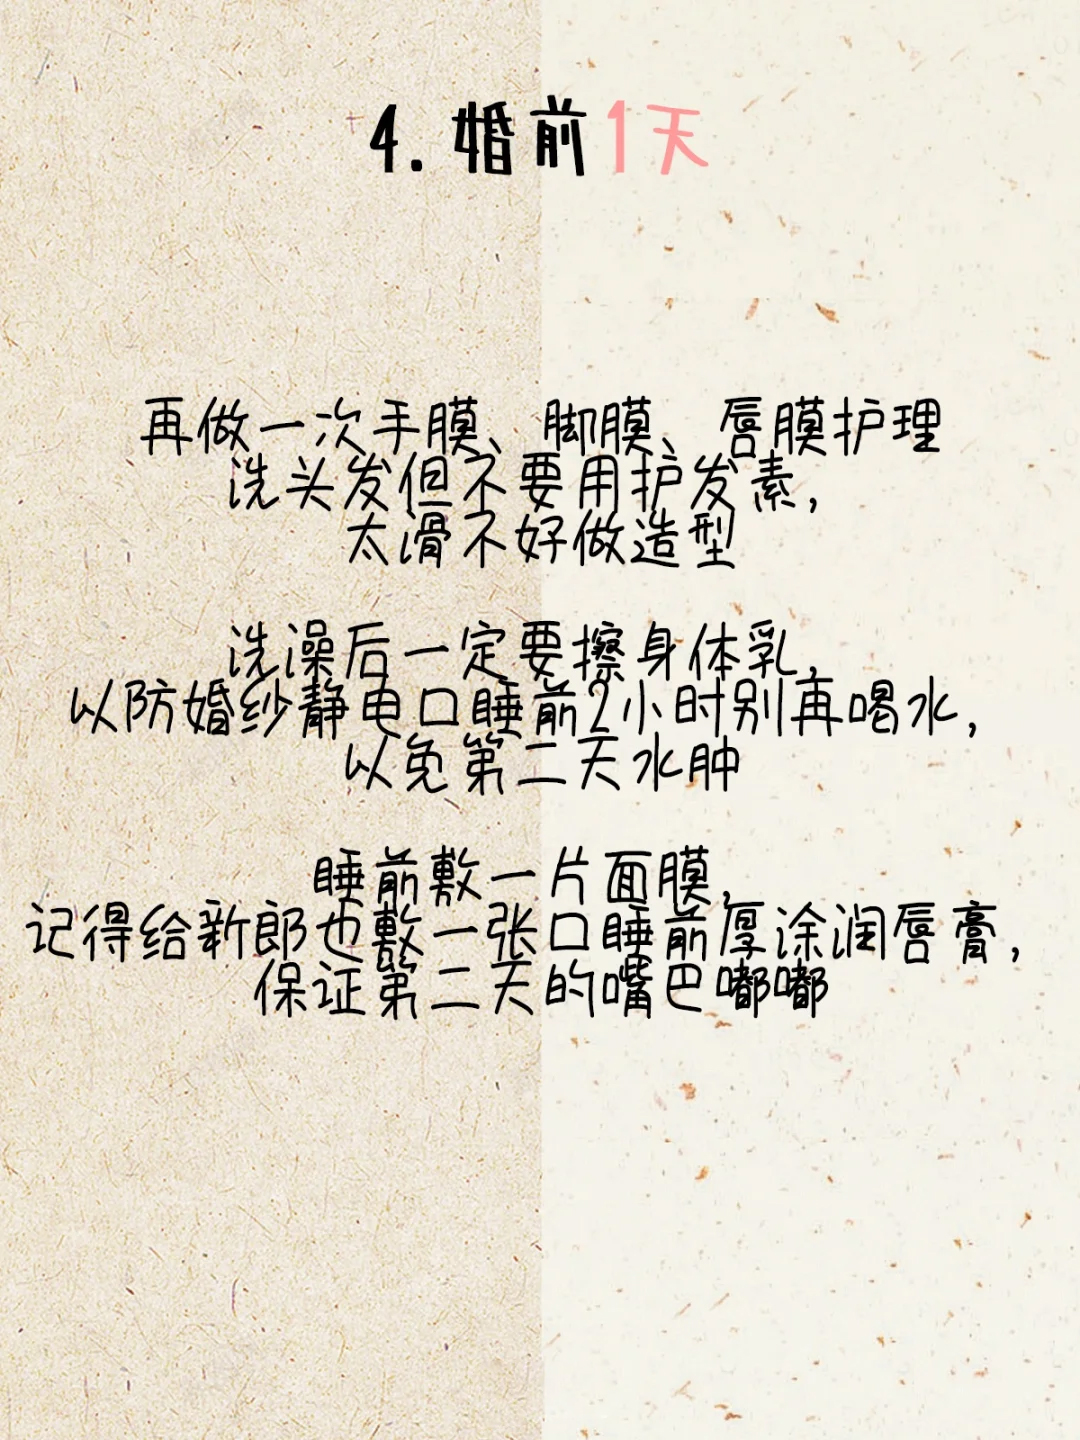 4.婚前1天
再做一次手膜、脚膜、唇膜护理
洗头发但不要用护发素，
太滑不好做造型
洗澡后一定要擦身体乳，
以防婚纱静电口睡前2小时别再喝水，
以免第二天水肿
睡前敷一片面膜，
记得给新郎也敷一张口睡前厚涂润唇膏，
保证第二天的嘴巴嘟嘟